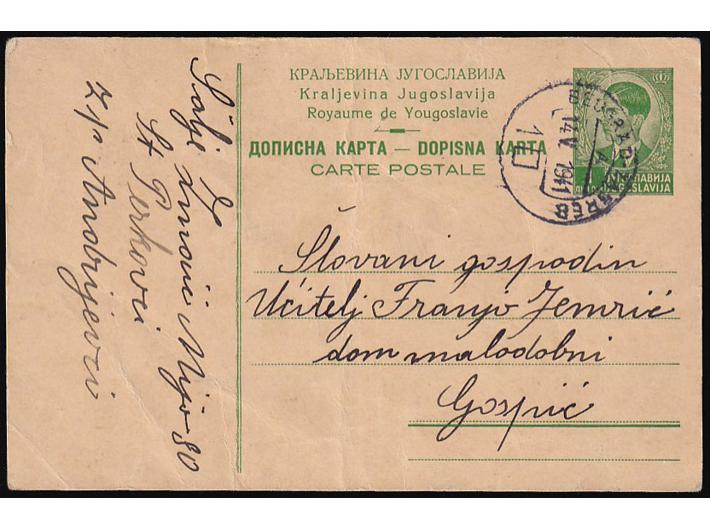 КРАЉЕВИНА ЈУГОСЛАВИЈА
Kraljevina Jugoslavija
Royaume de Yougoslavie
ДОПИСНА КАРТА — DOPISNA KARTA
CARTE POSTALE
ЈУГОСЛАВИЈА
JUGOSLAVIJA
BEOGRAD ZAGREB
14 V 1941
A
10
Šlovani gospodin
Učitelj Franjo Jemrić
dom malodobni
Gospić
Šalje
Mijo 80
St Perkovci
z/p Andrijevci